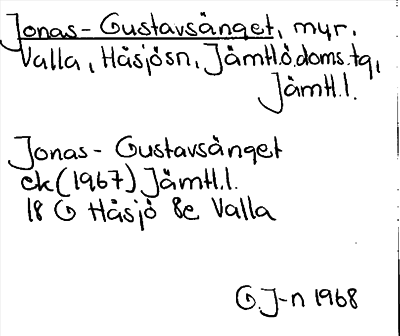 Jonas-Gustavsänget, myr,
Valla, Håsjösn, Jämtl.ö.doms.tg,
Jämtl.l.
Jonas-Gustavsänget
ek (1967) Jämtl.l.
18 G Håsjö 8e Valla
G.J-n 1968